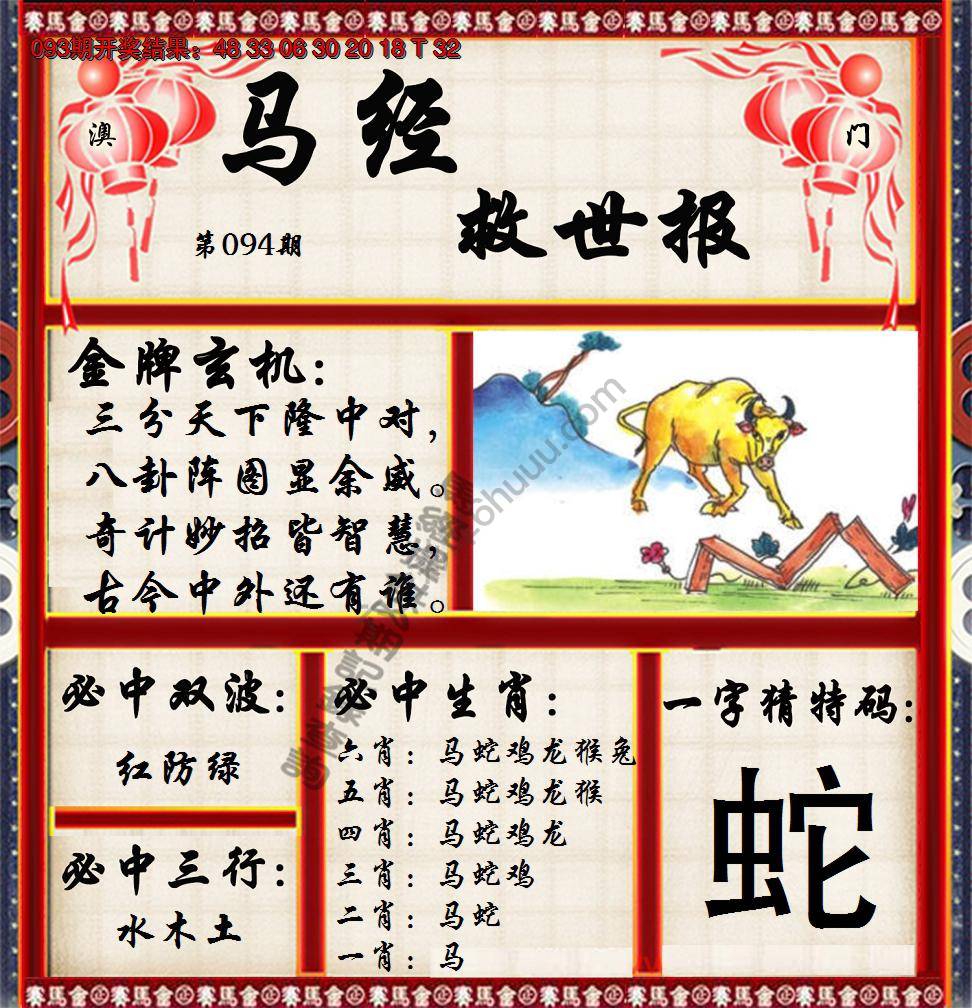 093期开奖结果：48 33 06 30 20 18 T 32
澳
门
马经
救世报
第094期
金牌玄机：
三分天下隆中对，
八卦阵图显余威。
奇计妙招皆智慧，
古今中外还有谁。
必中双波：
红防绿
必中三行：
水木土
必中生肖：
六肖：马蛇鸡龙猴兔
五肖：马蛇鸡龙猴
四肖：马蛇鸡龙
三肖：马蛇鸡
二肖：马蛇
一肖：马
一字猜特码：
蛇